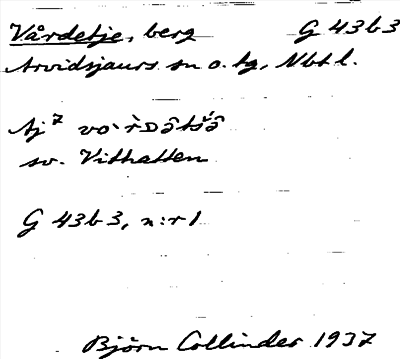 Vårdetje, berg G 43b3
Arvidsjaurs sn o. tg, Nbt l.
Aj⁷
sv. Vithatten
G 43b3, n:r 1
Björn Collinder 1937